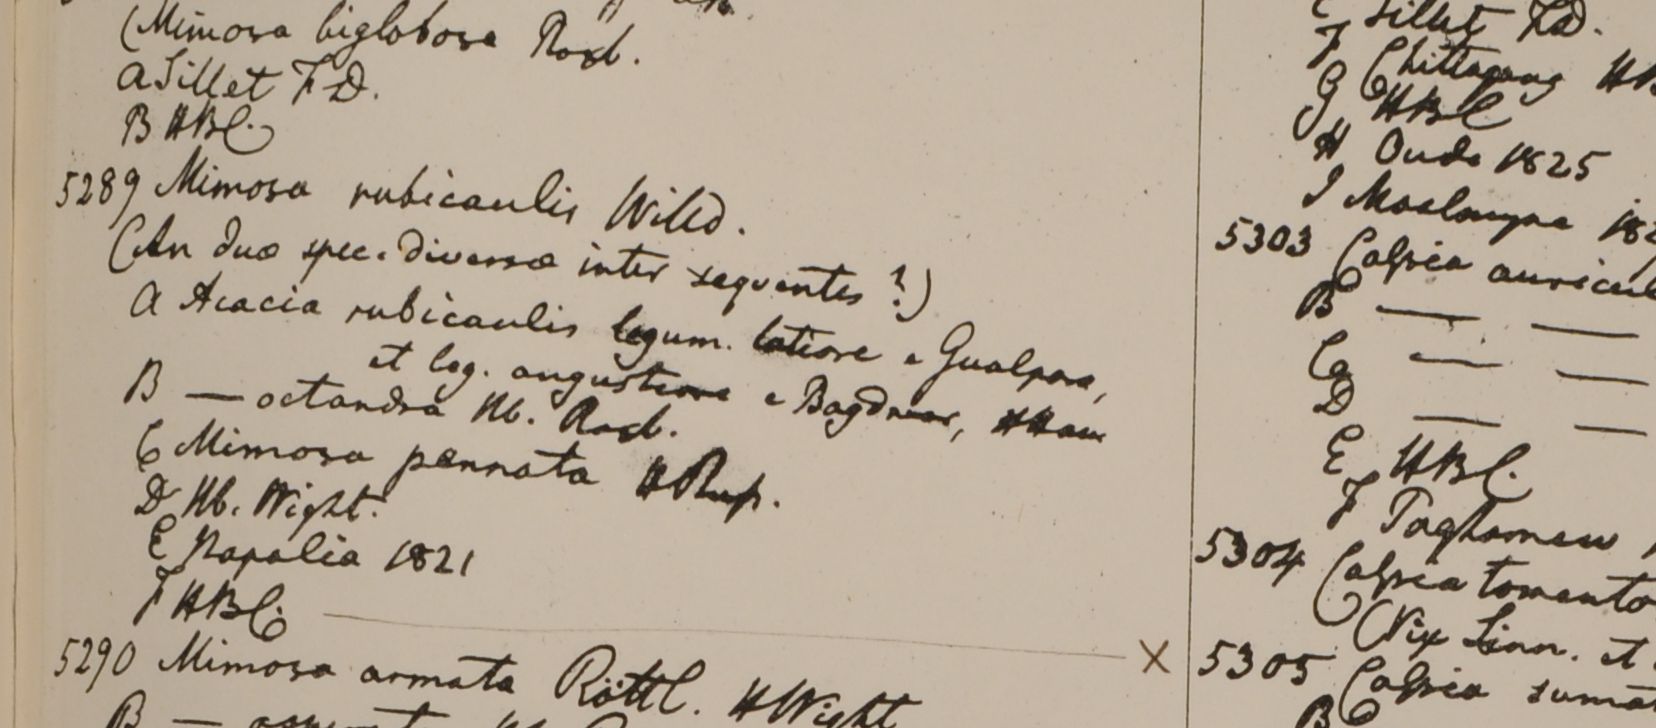 (Mimosa biglobosa Roxb.
a Sillet F.D.
B HBC.
5289 Mimosa rubicaulis Willd.
(An duae spec. diversae inter sequentes?)
a Acacia rubicaulis legum. latiore e Gualpara,
et leg. angustiore e Bagdwar, HHam
B — octandra Hb. Roxb.
C Mimosa pennata HRup.
D Hb. Wight.
E Napalia 1821
F HBC.
5290 Mimosa armata Rottl. HWight
B —
X
Sillet F.D.
F Chittagong
G HBC
H Oude 1825
I 
5303 Cassia auricul
B — —
C — —
D — —
E HBC.
F
5304 Cassia tomento
(Vix Linn. et
5305 Cassia suma
B